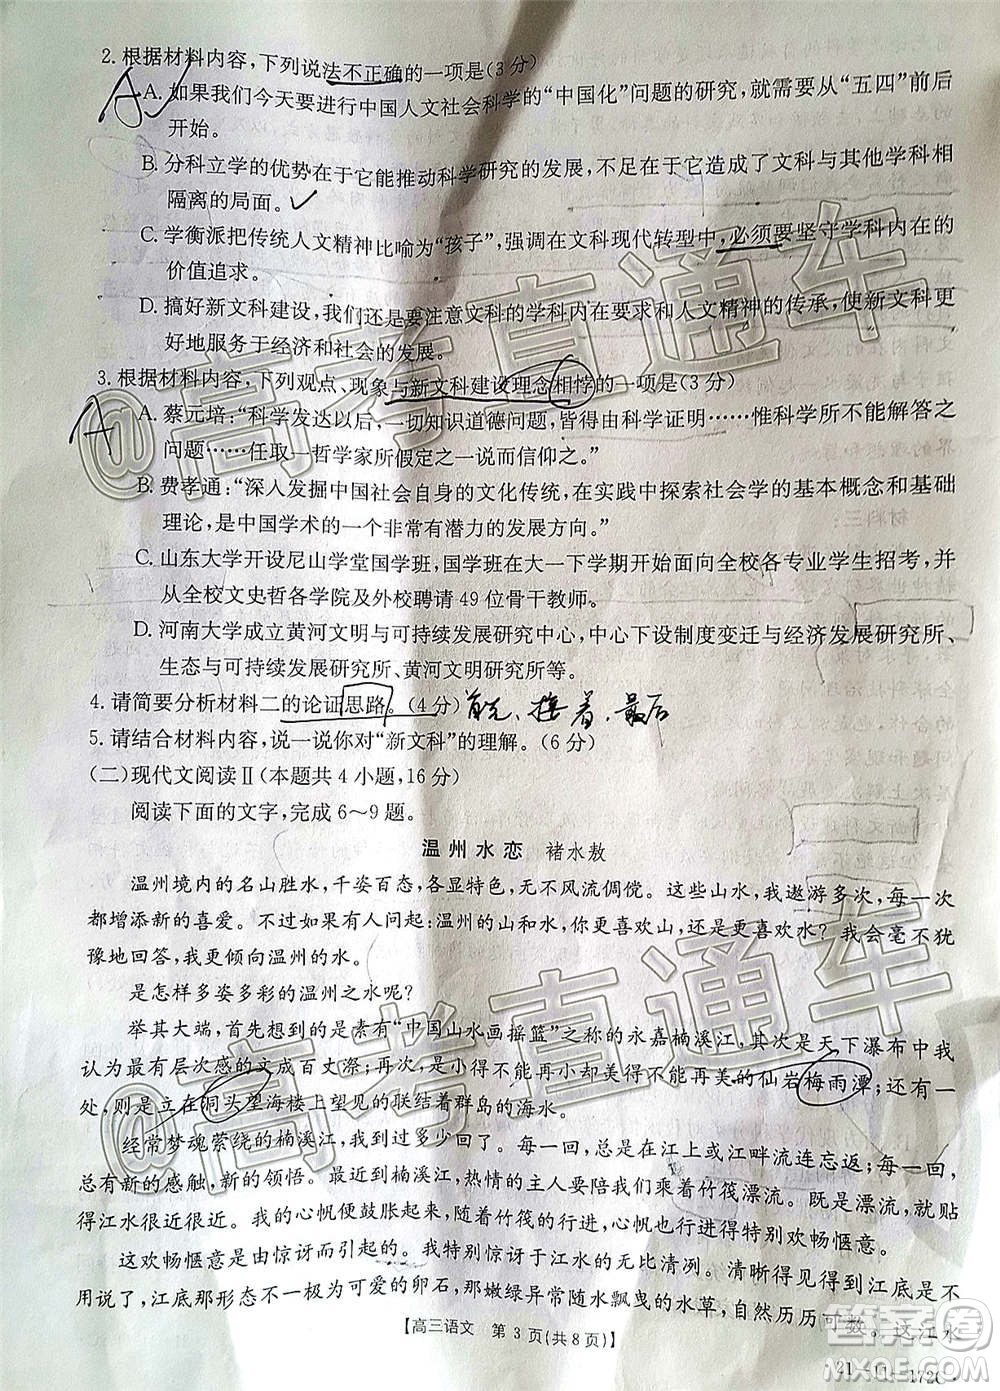 2. 根据材料内容,下列说法不正确的一项是(3分)
A
A. 如果我们今天要进行中国人文社会科学的“中国化”问题的研究,就需要从“五四”前后
开始。
B. 分科立学的优势在于它能推动科学研究的发展,不足在于它造成了文科与其他学科相
隔离的局面。
C. 学衡派把传统人文精神比喻为“孩子”,强调在文科现代转型中,必须要坚守学科内在的
价值追求。
D. 搞好新文科建设,我们还是要注意文科的学科内在要求和人文精神的传承,使新文科更
好地服务于经济和社会的发展。
3. 根据材料内容,下列观点、现象与新文科建设理念相悖的一项是(3分)
A
A. 蔡元培:“科学发达以后,一切知识道德问题,皆得由科学证明……惟科学所不能解答之
问题……任取一哲学家所假定之一说而信仰之。”
B. 费孝通:“深入发掘中国社会自身的文化传统,在实践中探索社会学的基本概念和基础
理论,是中国学术的一个非常有潜力的发展方向。”
C. 山东大学开设尼山学堂国学班,国学班在大一下学期开始面向全校各专业学生招考,并
从全校文史哲各学院及外校聘请49位骨干教师。
D. 河南大学成立黄河文明与可持续发展研究中心,中心下设制度变迁与经济发展研究所、
生态与可持续发展研究所、黄河文明研究所等。
4. 请简要分析材料二的论证思路。(4分) 首先、接着、最后
5. 请结合材料内容,说一说你对“新文科”的理解。(6分)
(二)现代文阅读Ⅱ(本题共4小题,16分)
阅读下面的文字,完成6~9题。
温州水恋 褚水敖
温州境内的名山胜水,千姿百态,各显特色,无不风流倜傥。这些山水,我遨游多次,每一次
都增添新的喜爱。不过如果有人问起:温州的山和水,你是更喜欢山,还是更喜欢水?我会毫不犹
豫地回答,我更倾向温州的水。
是怎样多姿多彩的温州之水呢?
举其大端,首先想到的是素有“中国山水画摇篮”之称的永嘉楠溪江,其次是天下瀑布中我
认为最有层次感的文成百丈漈;再次,是小得不能再小却美得不能再美的仙岩梅雨潭;还有一
处,则是立在洞头望海楼上望见的联结着群岛的海水。
经常梦魂萦绕的楠溪江,我去过多少回了。每一回,总在江上或江畔流连忘返;每一回,
总有新的感触,新的领悟。最近到楠溪江,热情的主人要陪我们乘着竹筏漂流。既是漂流,就觉
得江水很近很近。我的心帆便鼓胀起来,随着竹筏的悠悠前行,心帆也欢畅惬意。
这欢畅惬意是由惊讶而引起的。我特别惊讶于江水的无比清冽。清晰得见江底是不
用说了,江底那形态不一却极为可爱的卵石,那嫩绿异常随水飘曳的水草,自然历历可数。这江水
【高三语文 第3页(共8页)】
@高考直通车
@高考直通车